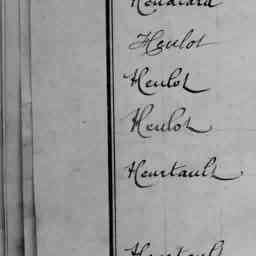 Heulot
Heulot
Heulot
Heurtault
Heurtault